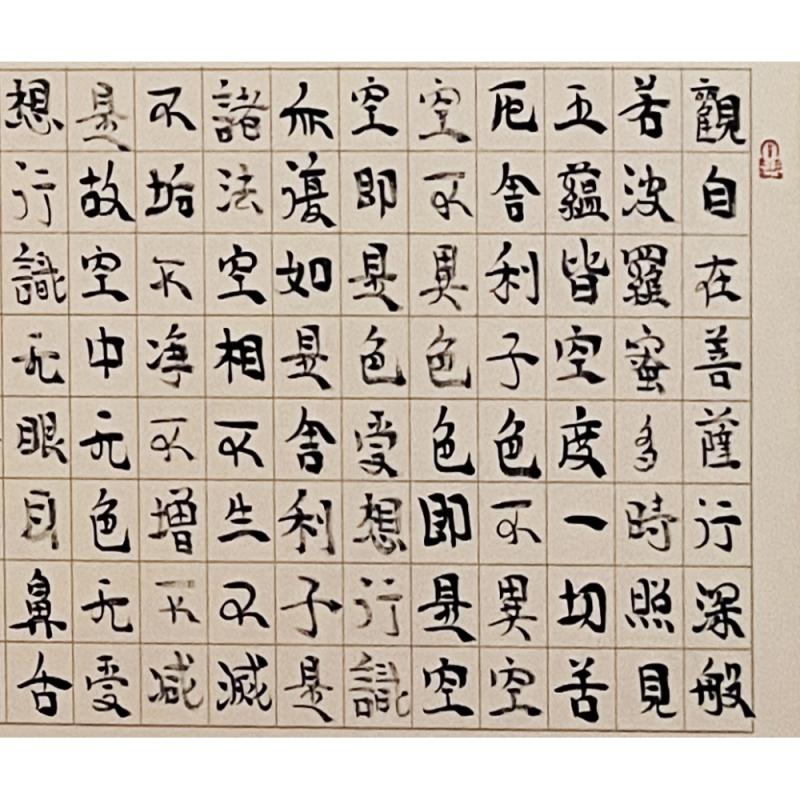 觀自在菩薩行深般
若波羅蜜多時照見
五蘊皆空度一切苦
厄舍利子色不異空
空不異色色即是空
空即是色受想行識
亦復如是舍利子是
諸法空相不生不滅
不垢不净不增不减
是故空中无色无受
想行識无眼耳鼻舌